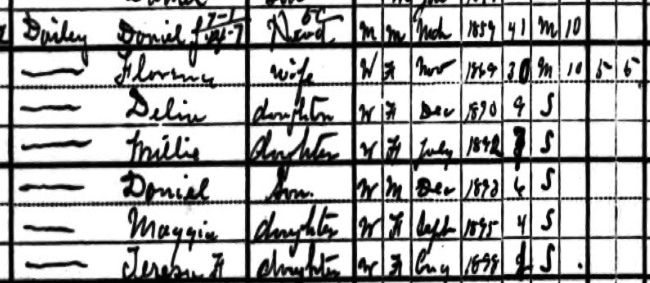 Dailey Daniel J Head W M Mch 1859 41 M 10
— Florence wife W F Nov 1869 30 M 10 5 5
— Delia daughter W F Dec 1890 9 S
— Millie daughter W F July 1892 7 S
— Daniel Son W M Dec 1893 6 S
— Maggie daughter W F Sept 1895 4 S
— Teresa F daughter W F Aug 1899 S